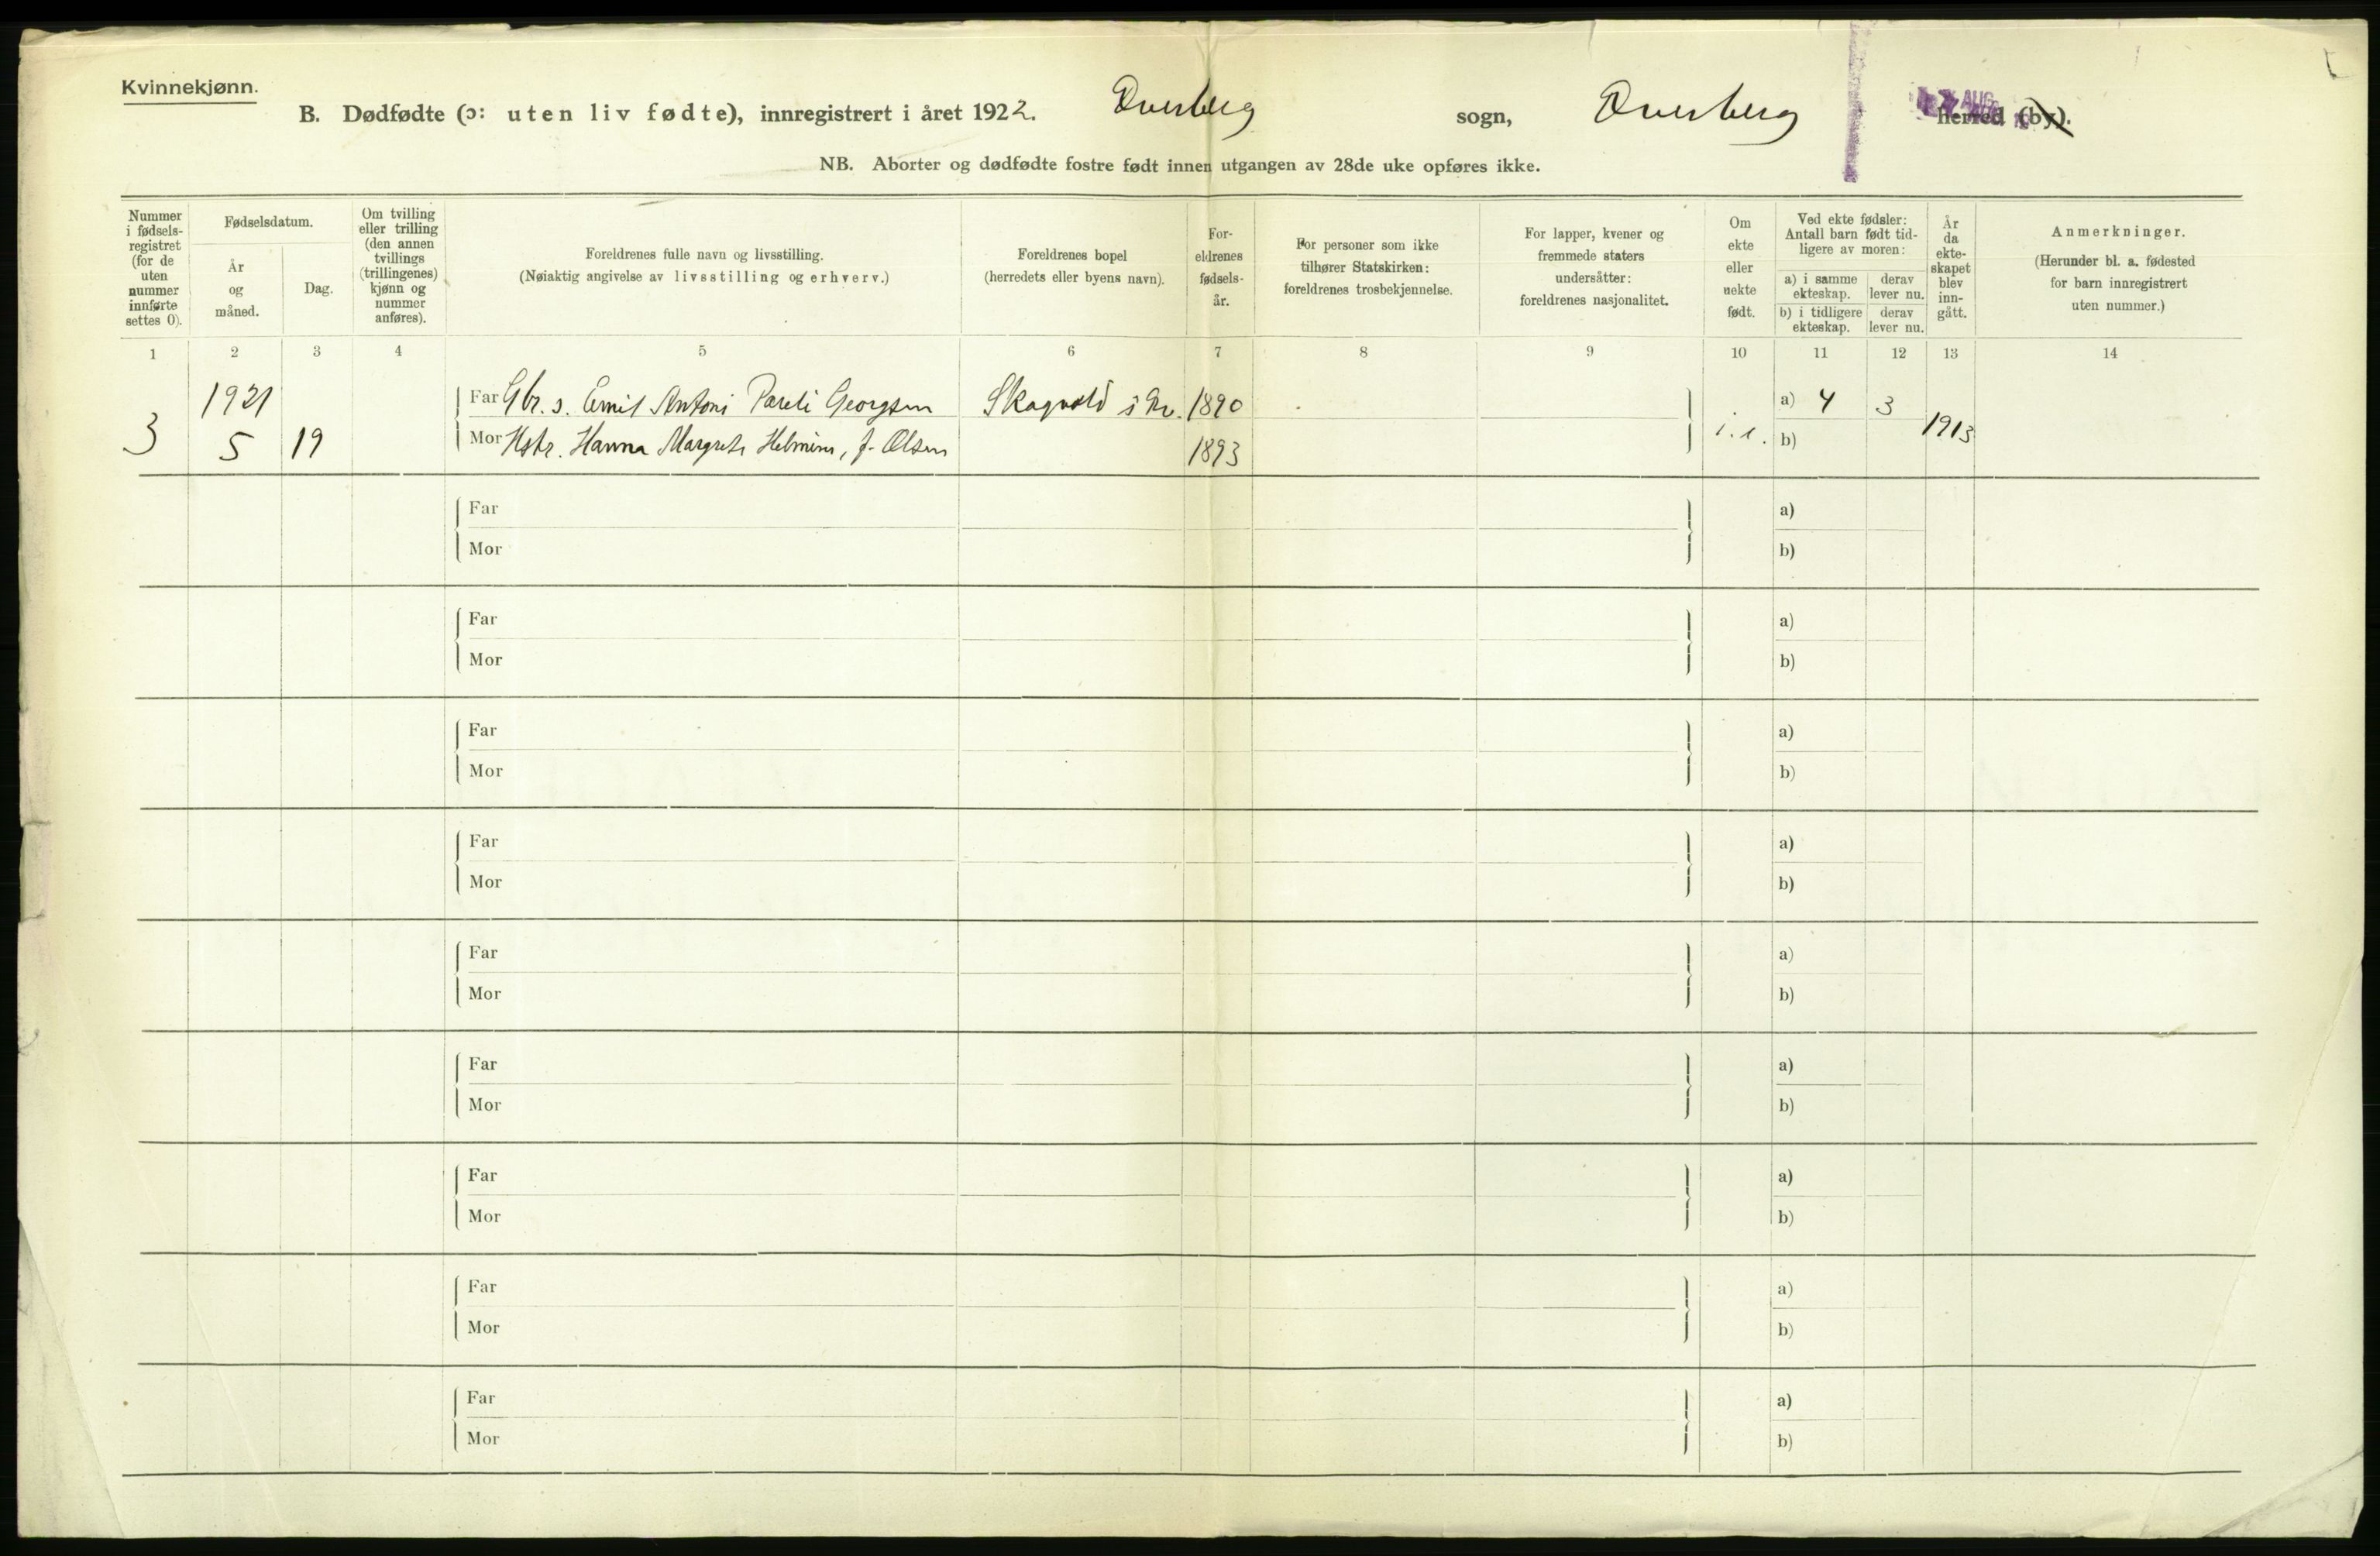 Kvinnekjønn.
B. Dødfødte (ɔ: uten liv fødte), innregistrert i året 1922. Øverberg sogn, Øverberg herred (by).
NB. Aborter og dødfødte fostre født innen utgangen av 28de uke opføres ikke.
Nummer i fødselsregistret (for de uten nummer innførte settes 0).
Fødselsdatum.
År og måned.
Dag.
Om tvilling eller trilling (den annen tvillings (trillingenes) kjønn og nummer anføres).
Foreldrenes fulle navn og livsstilling.
(Nøiaktig angivelse av livsstilling og erhverv.)
Foreldrenes bopel
(herredets eller byens navn).
Foreldrenes fødselsår.
For personer som ikke tilhører Statskirken: foreldrenes trosbekjennelse.
For lapper, kvener og fremmede staters undersåtter: foreldrenes nasjonalitet.
Om ekte eller uekte født.
Ved ekte fødsler: Antall barn født tidligere av moren:
a) i samme ekteskap.
derav lever nu.
b) i tidligere ekteskap.
derav lever nu.
År da ekteskapet blev inngått.
Anmerkninger.
(Herunder bl. a. fødested for barn innregistrert uten nummer.)
1 2 3 4 5 6 7 8 9 10 11 12 13 14
3 1921 5 19
Far Gbr. s. Emil Antoni Pareli Georgsen Skagvold 1890
Mor Hstr. Hanna Margrete Helmine, f. Olsen 1893
a) 4 3 1913
b)
Far a)
Mor b)
Far a)
Mor b)
Far a)
Mor b)
Far a)
Mor b)
Far a)
Mor b)
Far a)
Mor b)
Far a)
Mor b)
Far a)
Mor b)
Far a)
Mor b)